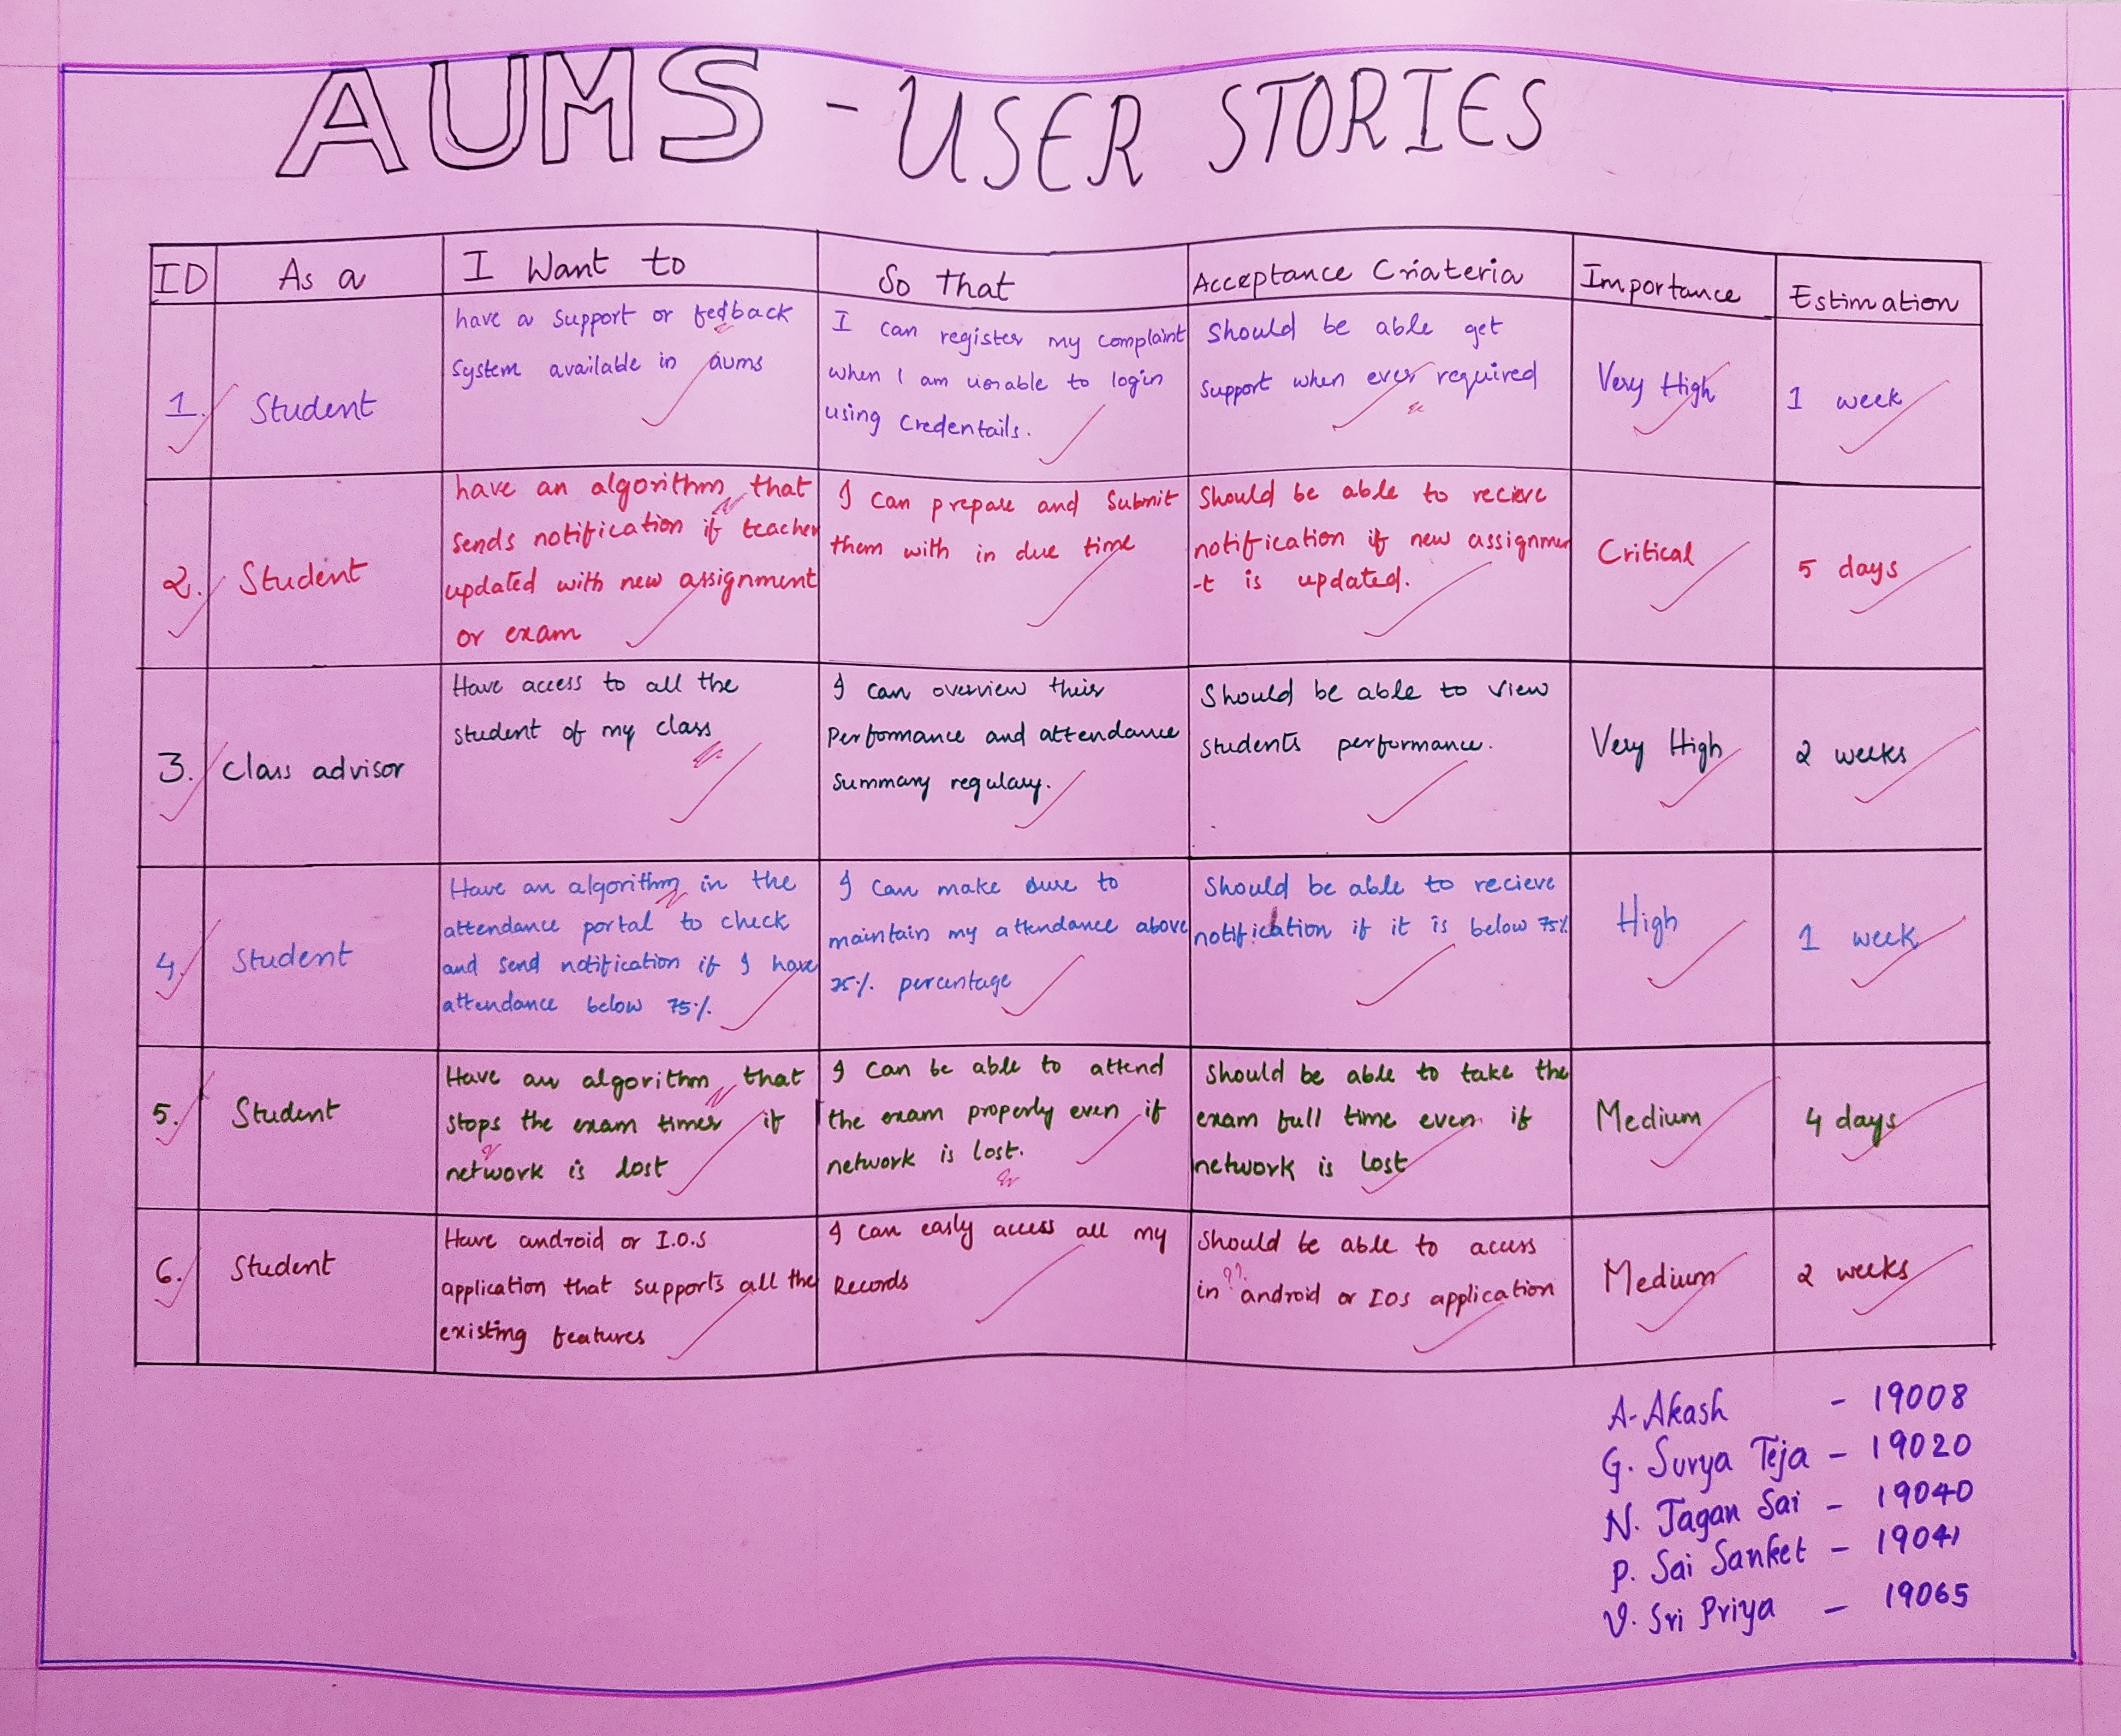 AUMS - USER STORIES
ID
As a
I Want to
So that
Acceptance Criateria
Importance
Estimation
1.
Student
have a support or fedback
system available in aums
I can register my complaint
when I am unable to login
using Credentails.
Should be able get
support when ever required
Very High
1 week
2.
Student
have an algorithm that
sends notification if teacher
updated with new assignment
or exam
I can prepare and submit
them with in due time
Should be able to recieve
notification if new assignmen
-t is updated.
Critical
5 days
3.
Class advisor
Have access to all the
student of my class
I can overview their
performance and attendance
summary regulary.
Should be able to view
students performance.
Very High
2 weeks
4.
Student
Have an algorithm in the
attendance portal to check
and send notification if I have
attendance below 75%.
I can make sure to
maintain my attendance above
75% percentage
Should be able to recieve
notification if it is below 75%
High
1 week
5.
Student
Have an algorithm that
stops the exam timer if
network is lost
I can be able to attend
the exam properly even if
network is lost.
Should be able to take the
exam full time even if
network is lost
Medium
4 days
6.
Student
Have android or I.O.S
application that supports all the
existing features
I can easly access all my
Records
Should be able to access
??
in android or IOS application
Medium
2 weeks
A-Akash - 19008
G. Surya Teja - 19020
N. Jagan Sai - 19040
P. Sai Sanket - 19041
V. Sri Priya - 19065